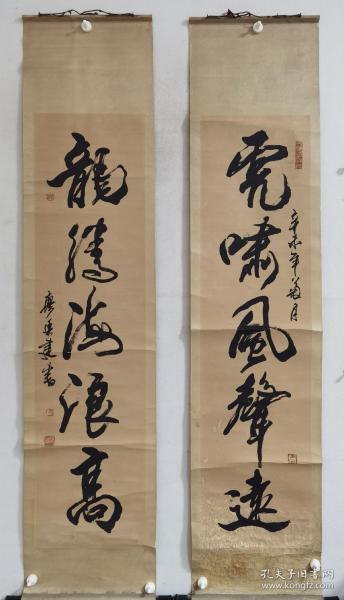 虎嘯風聲遠
辛未年菊月
龍騰海浪高
建書
孔夫子旧书网